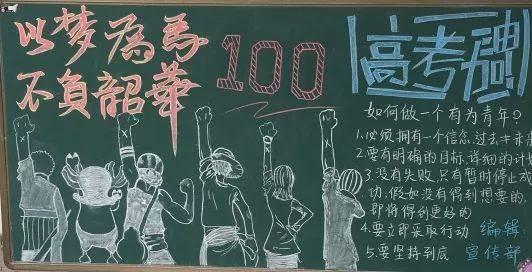 以梦為馬
不負韶華
100
高考
如何做一个有为青年?
1.必须拥有一个信念.过去并
2.要有明确的目标.详细的计
3.没有失败.只有暂时停止成
功.假如没有得到想要的
即将得到更好的
4.要立即采取行动
5.要坚持到底
编辑:
宣传部